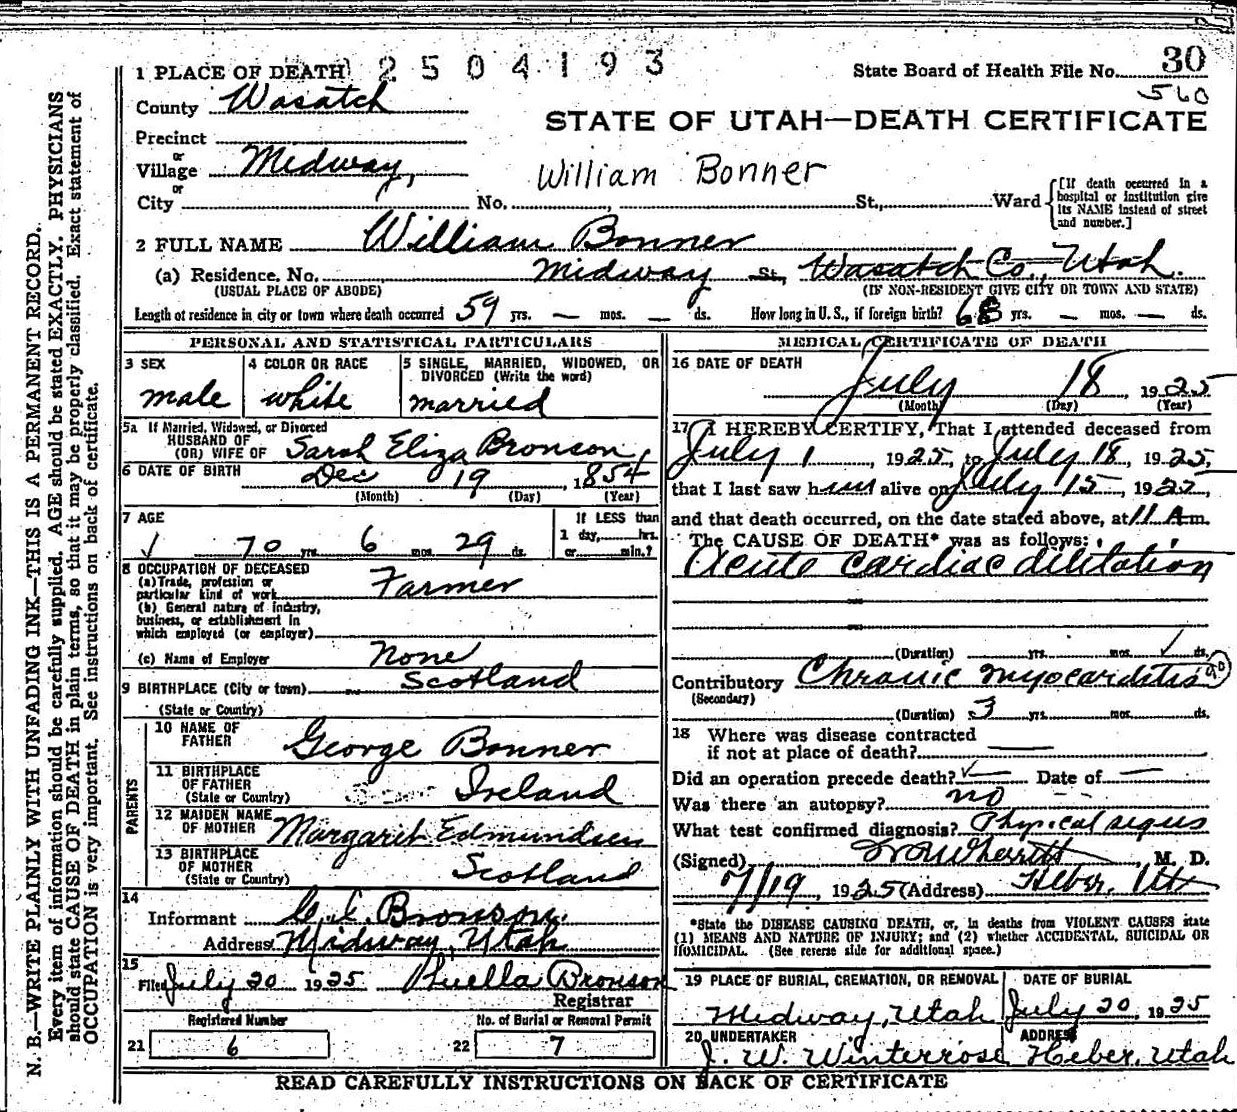 N. B.—WRITE PLAINLY WITH UNFADING INK—THIS IS A PERMANENT RECORD.
Every item of information should be carefully supplied. AGE should be stated EXACTLY. PHYSICIANS
should state CAUSE OF DEATH in plain terms, so that it may be properly classified. Exact statement of
OCCUPATION is very important. See instructions on back of certificate.
2504193
1 PLACE OF DEATH
State Board of Health File No. 30
560
County Wasatch
STATE OF UTAH—DEATH CERTIFICATE
Precinct
or
Village Midway,
William Bonner
or
City No. St., Ward
[If death occurred in a
hospital or institution give
its NAME instead of street
and number.]
2 FULL NAME William Bonner
(a) Residence, No. Midway St., Wasatch Co., Utah.
(USUAL PLACE OF ABODE) (IF NON-RESIDENT GIVE CITY OR TOWN AND STATE)
Length of residence in city or town where death occurred 59 yrs. — mos. — ds. How long in U.S., if foreign birth? yrs. — mos. — ds.
PERSONAL AND STATISTICAL PARTICULARS
3 SEX
male
4 COLOR OR RACE
white
5 SINGLE, MARRIED, WIDOWED, OR
DIVORCED (Write the word)
married
5a If Married, Widowed, or Divorced
HUSBAND OF
(OR) WIFE OF Sarah Eliza Bronson
6 DATE OF BIRTH Dec 19, 1854
(Month) (Day) (Year)
7 AGE
70 yrs. 6 mos. 29 ds.
If LESS than
1 day, hrs.
or min.?
8 OCCUPATION OF DECEASED
(a) Trade, profession or
particular kind of work Farmer
(b) General nature of industry,
business, or establishment in
which employed (or employer)
(c) Name of Employer None
9 BIRTHPLACE (City or town) Scotland
(State or Country)
PARENTS
10 NAME OF
FATHER George Bonner
11 BIRTHPLACE
OF FATHER
(State or Country) Ireland
12 MAIDEN NAME
OF MOTHER Margaret Edmundsen
13 BIRTHPLACE
OF MOTHER
(State or Country) Scotland
14
Informant Bronson.
Address Midway, Utah
15
Filed July 20 1925 Luella Bronson
Registrar
Registered Number No. of Burial or Removal Permit
21 6 22 7
MEDICAL CERTIFICATE OF DEATH
16 DATE OF DEATH
July 18, 1925
(Month) (Day) (Year)
17 I HEREBY CERTIFY, That I attended deceased from
July 1, 1925, to July 18, 1925,
that I last saw him alive on July 15, 1925,
and that death occurred, on the date stated above, at 11 A m.
The CAUSE OF DEATH* was as follows:
Acute cardiac dilitation
(Duration) yrs. mos. ds.
Contributory Chronic myocarditis
(Secondary)
(Duration) 3 yrs. mos. ds.
18 Where was disease contracted
if not at place of death?
Did an operation precede death? — Date of —
Was there an autopsy? no
What test confirmed diagnosis? Physical signs
(Signed) Wherritt, M. D.
7/19, 1925 (Address) Heber, Utx
*State the DISEASE CAUSING DEATH, or, in deaths from VIOLENT CAUSES state
(1) MEANS AND NATURE OF INJURY; and (2) whether ACCIDENTAL, SUICIDAL OR
HOMICIDAL. (See reverse side for additional space.)
19 PLACE OF BURIAL, CREMATION, OR REMOVAL
Midway, Utah
DATE OF BURIAL
July 20, 1925
20 UNDERTAKER
J. W. Winterrose
ADDRESS
Heber, Utah
READ CAREFULLY INSTRUCTIONS ON BACK OF CERTIFICATE